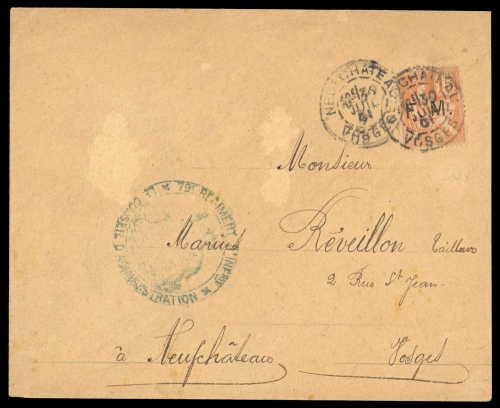 NEUFCHATEAU
VOSGES
30
JUIL
01
F. M.
NEUFCHATEAU
VOSGES
30
JUIL
01
Monsieur
LE CONSEIL D'ADMINISTRATION
79E REGIMENT D'INFRIE
Marius Réveillon Tailleur
2 Rue St Jean
à Neufchâteau Vosges